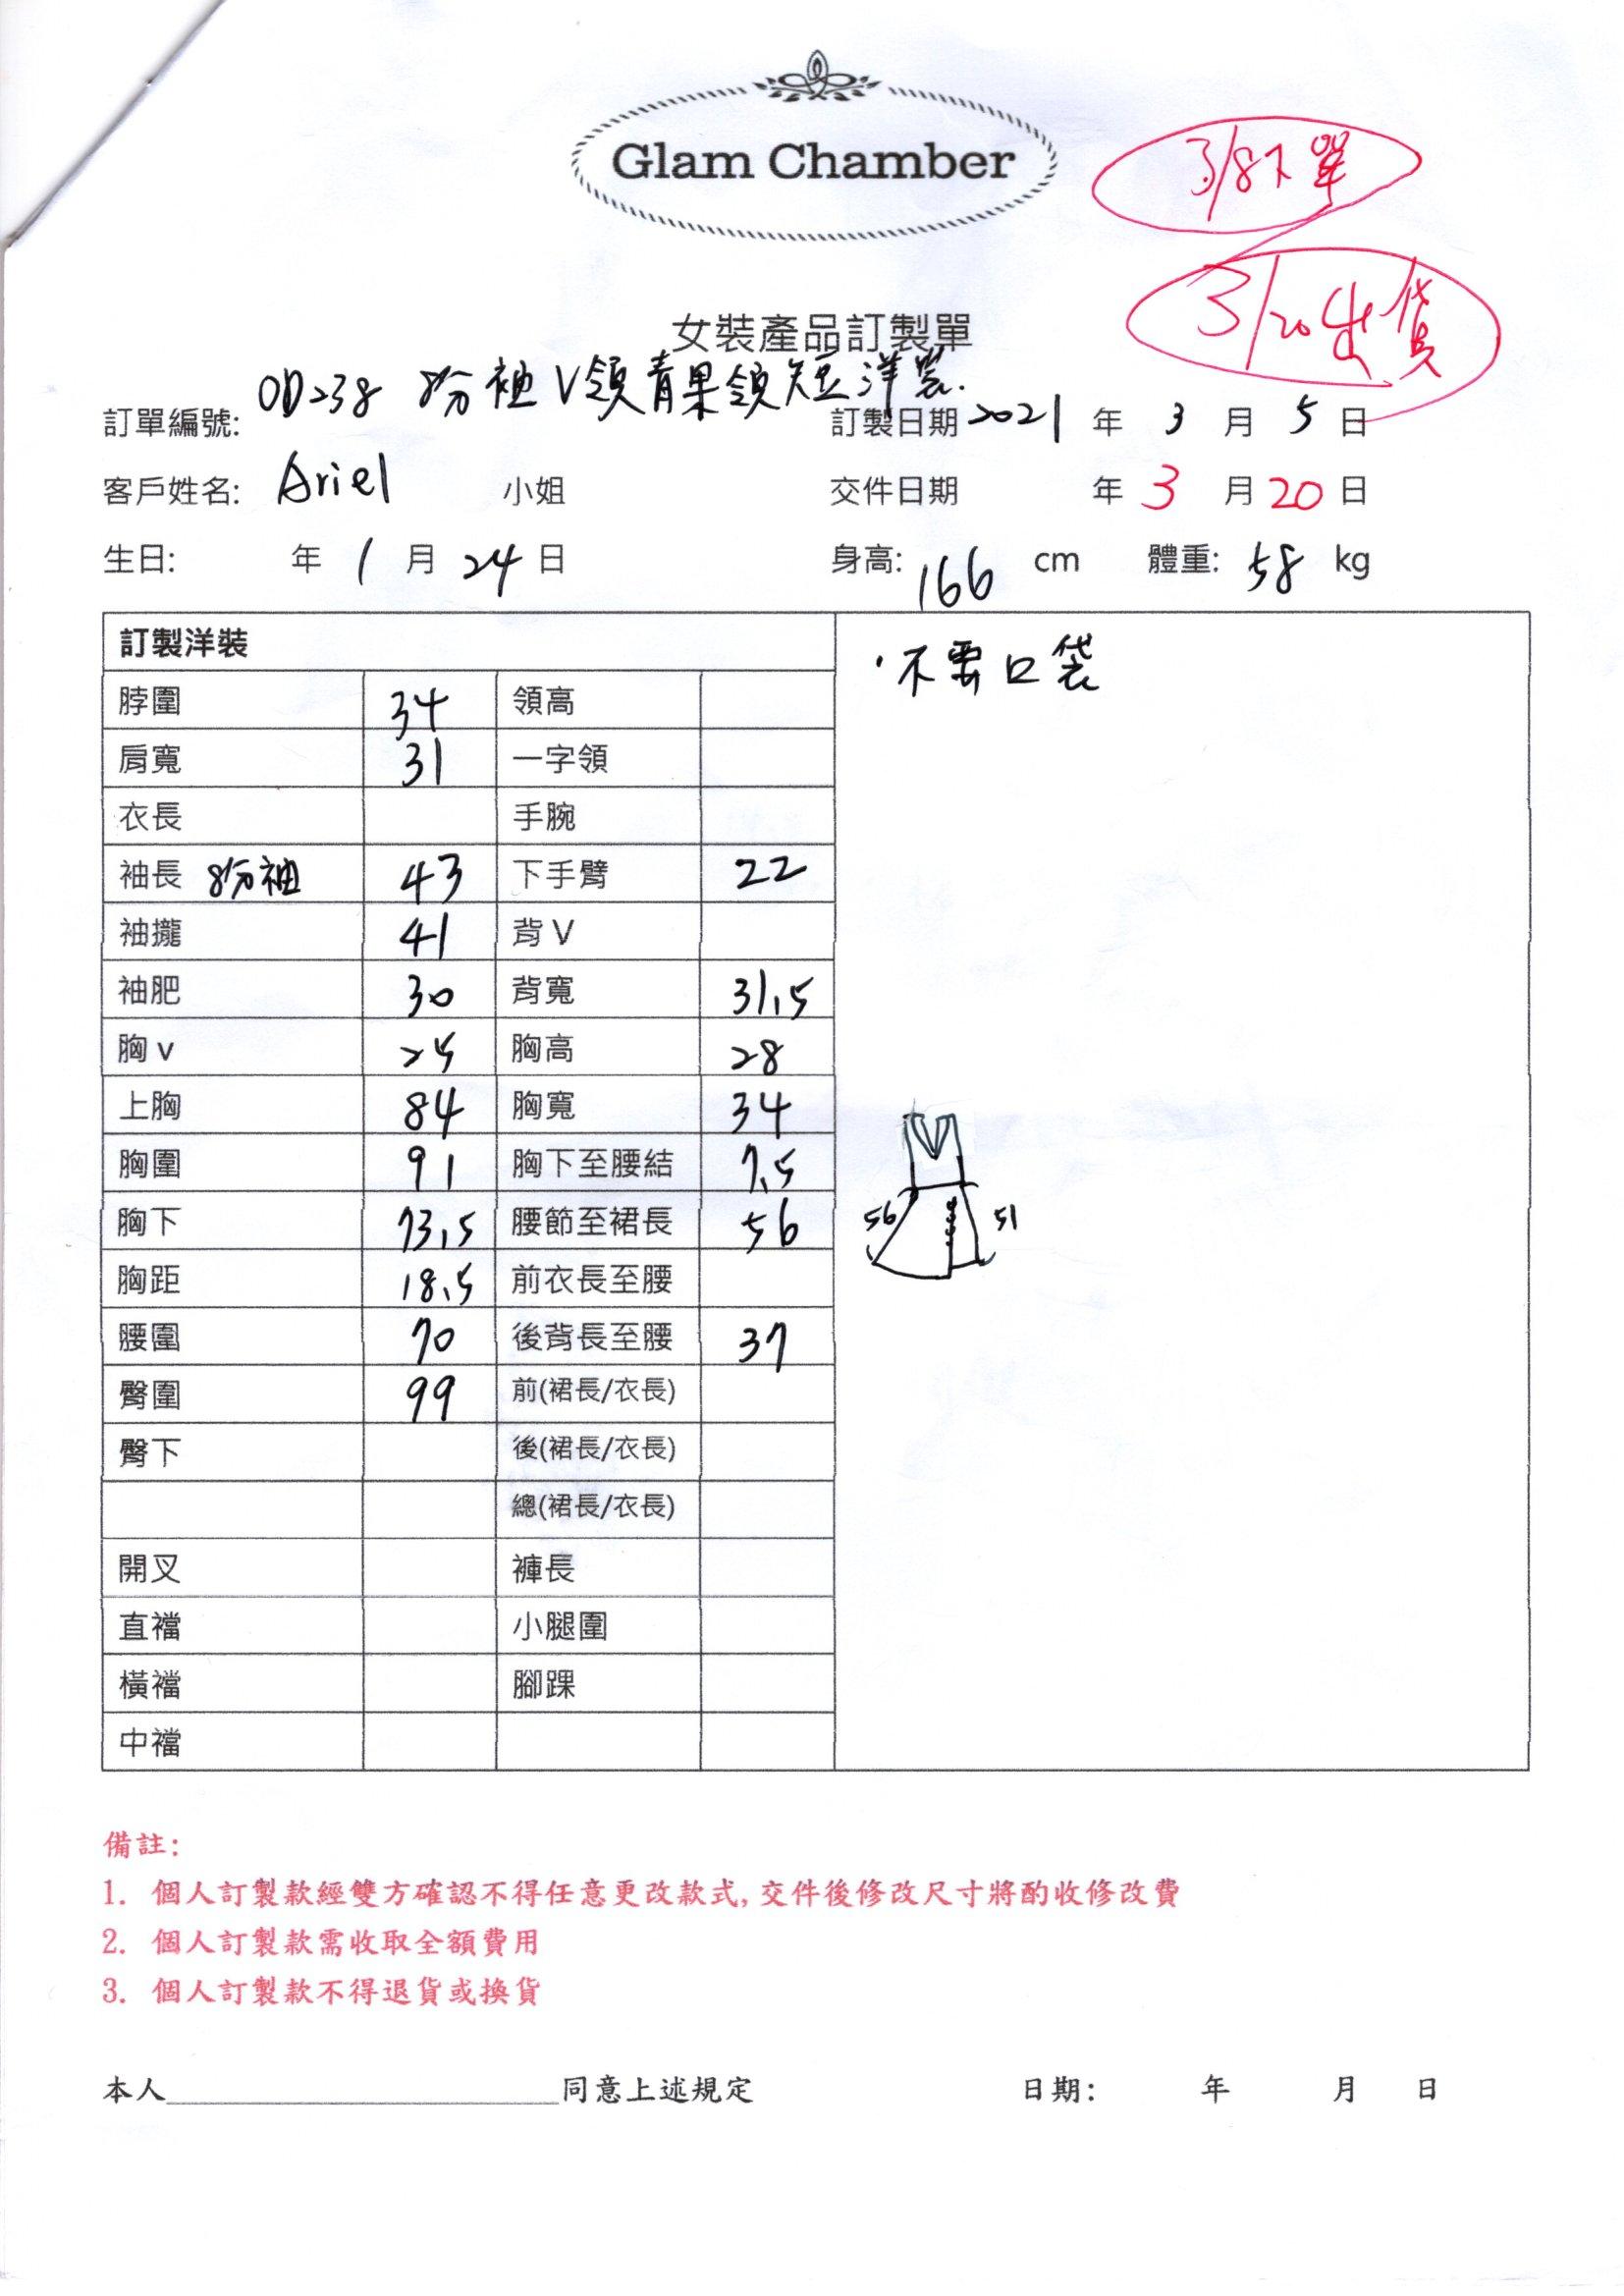 Glam Chamber
3/8下單
3/20出貨
女裝產品訂製單
訂單編號: OD238 8分袖V領青果領短洋裝. 訂製日期 2021 年 3 月 5 日
客戶姓名: Ariel 小姐 交件日期 年 3 月 20 日
生日: 年 1 月 24 日 身高: 166 cm 體重: 58 kg
訂製洋裝
·不要口袋
脖圍 34 領高
肩寬 31 一字領
衣長 手腕
袖長 8分袖 43 下手臂 22
袖攏 41 背V
袖肥 30 背寬 31.5
胸v 25 胸高 28
上胸 84 胸寬 34
胸圍 91 胸下至腰結 7.5
胸下 73.5 腰節至裙長 56
56 51
胸距 18.5 前衣長至腰
腰圍 70 後背長至腰 37
臀圍 99 前(裙長/衣長)
臀下 後(裙長/衣長)
總(裙長/衣長)
開叉 褲長
直襠 小腿圍
橫襠 腳踝
中襠
備註:
1. 個人訂製款經雙方確認不得任意更改款式, 交件後修改尺寸將酌收修改費
2. 個人訂製款需收取全額費用
3. 個人訂製款不得退貨或換貨
本人____________________同意上述規定 日期: 年 月 日